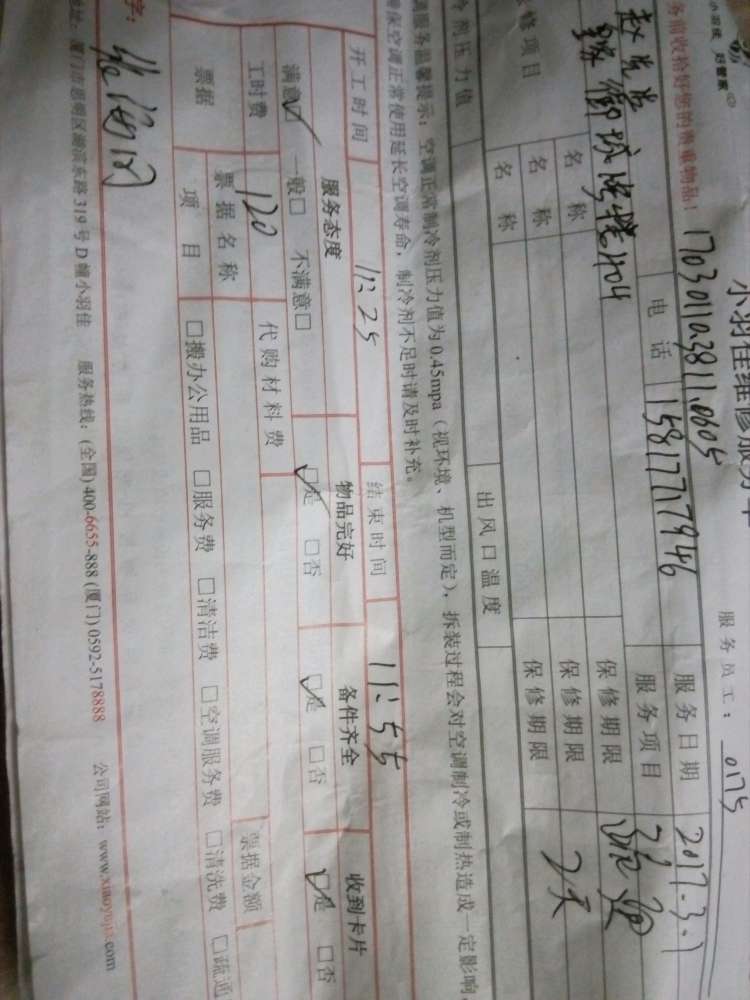 小羽佳维修服务单
服务员工：0175
务前收拾好您的贵重物品！
170301102811.0605
赵先生
电话 15817717946
服务日期 2017.3.1
服务项目
修项目
名称
保修期限
名称
保修期限
名称
保修期限 7天
冷剂压力值
出风口温度
调服务温馨提示：空调正常制冷剂压力值为0.45mpa（视环境、机型而定），拆装过程会对空调制冷或制热造成一定影响
确保空调正常使用延长空调寿命，制冷剂不足时请及时补充。
开工时间 11:25 结束时间 11:55
服务态度 物品完好 备件齐全 收到卡片
满意☑ 一般□ 不满意□ ☑是 □否 ☑是 □否 ☑是 □否
工时费 120 代购材料费
票据 票据名称 票据金额
项目 □搬办公用品 □服务费 □清洁费 □空调服务费 □清洗费 □疏通
字：
地址：厦门市思明区湖滨东路319号D幢小羽佳 服务热线：(全国)400-6655-888 (厦门)0592-5178888 公司网站：www.xiaoyujia.com